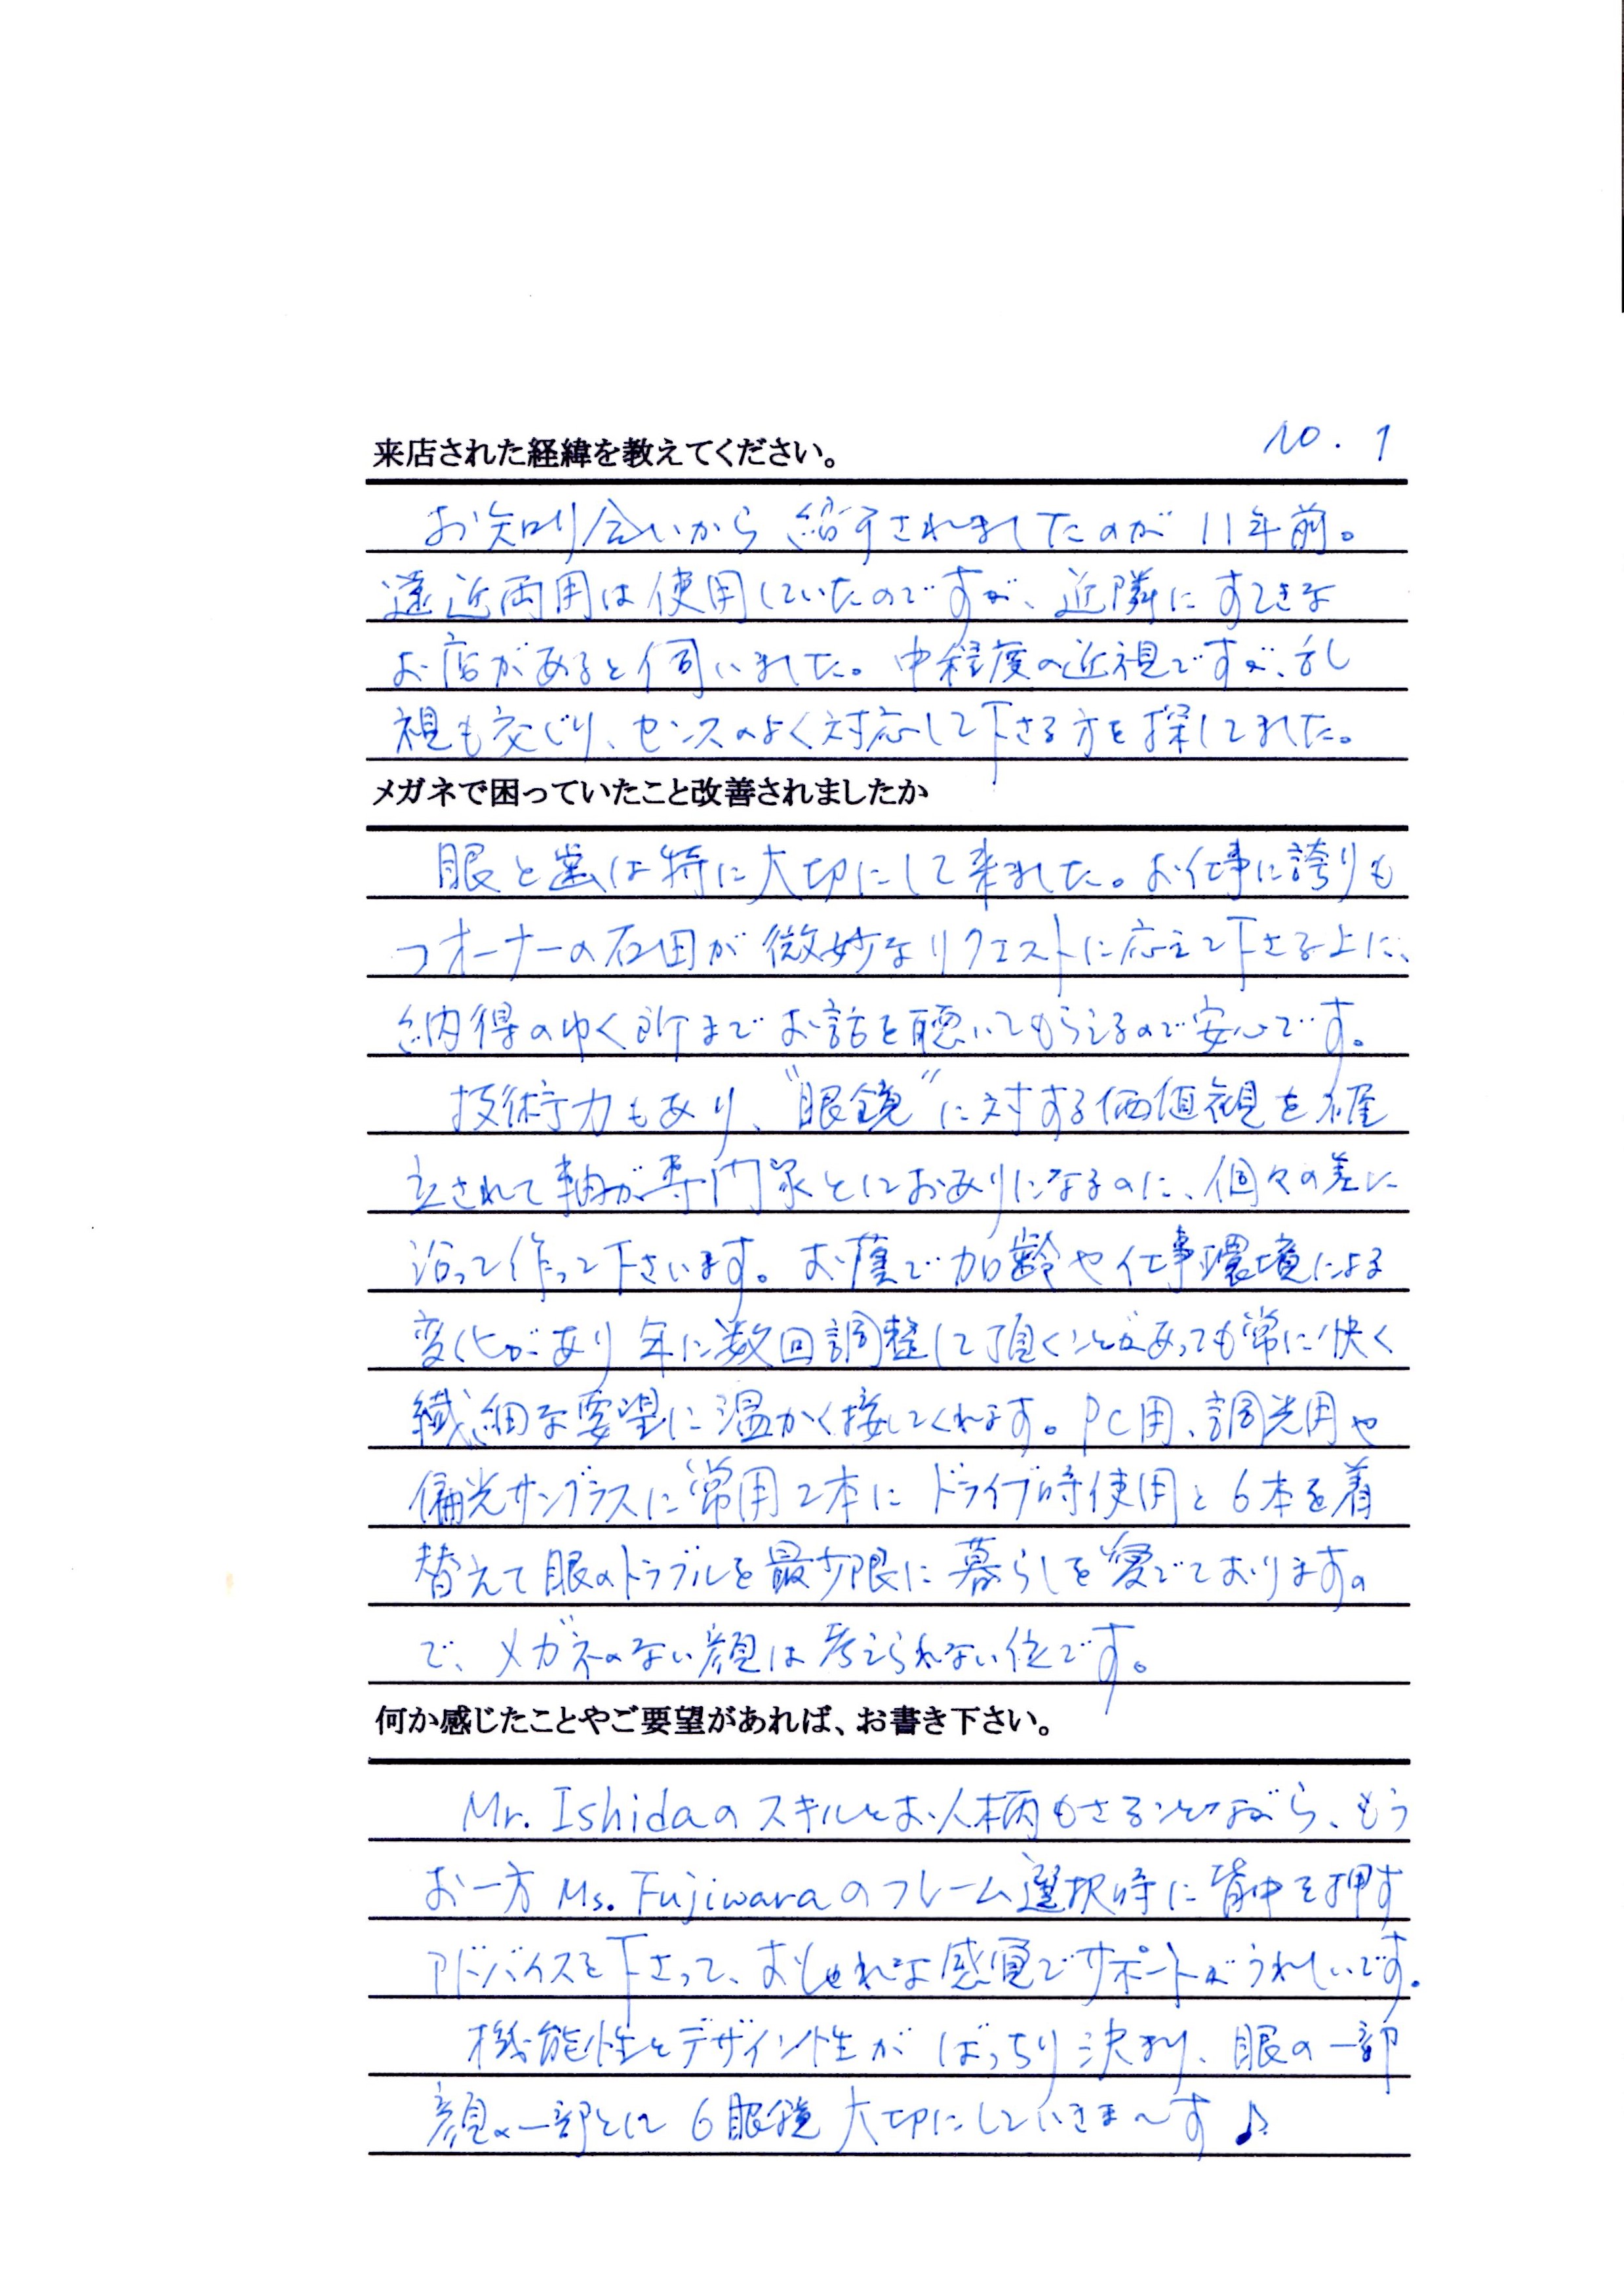 No. 1
来店された経緯を教えてください。
お知り合いから紹介されましたのが11年前。
遠近両用は使用していたのですが、近隣にすてきな
お店があると伺いました。中程度の近視ですが、乱
視も交じり、センスのよく対応して下さる方を探してました。
メガネで困っていたこと改善されましたか
眼と歯は特に大切にして来ました。お仕事に誇りも
つオーナーの石田が微妙なリクエストに応えて下さる上に、
納得のゆく所までお話を聴いてもらえるので安心です。
技術力もあり、"眼鏡"に対する価値観を確
立されて軸が専門家としておありになるのに、個々の差に
沿って作って下さいます。お蔭で加齢や仕事環境による
変化があり年に数回調整して頂くことがあっても常に快く
繊細な要望に温かく接してくれます。PC用、調光用や
偏光サングラスに常用2本にドライブ時使用と6本を着
替えて眼のトラブルを最少限に暮らしを愛でております。
で、メガネのない顔は考えられない位です。
何か感じたことやご要望があれば、お書き下さい。
Mr. Ishidaのスキルとお人柄もさることながら、もう
お一方Ms. Fujiwaraのフレーム選択時に背中を押す
アドバイスを下さって、おしゃれな感覚でサポートがうれしいです。
機能性とデザイン性がばっちり決まり、眼の一部
顔の一部として6眼鏡大切にしていきま〜す♪